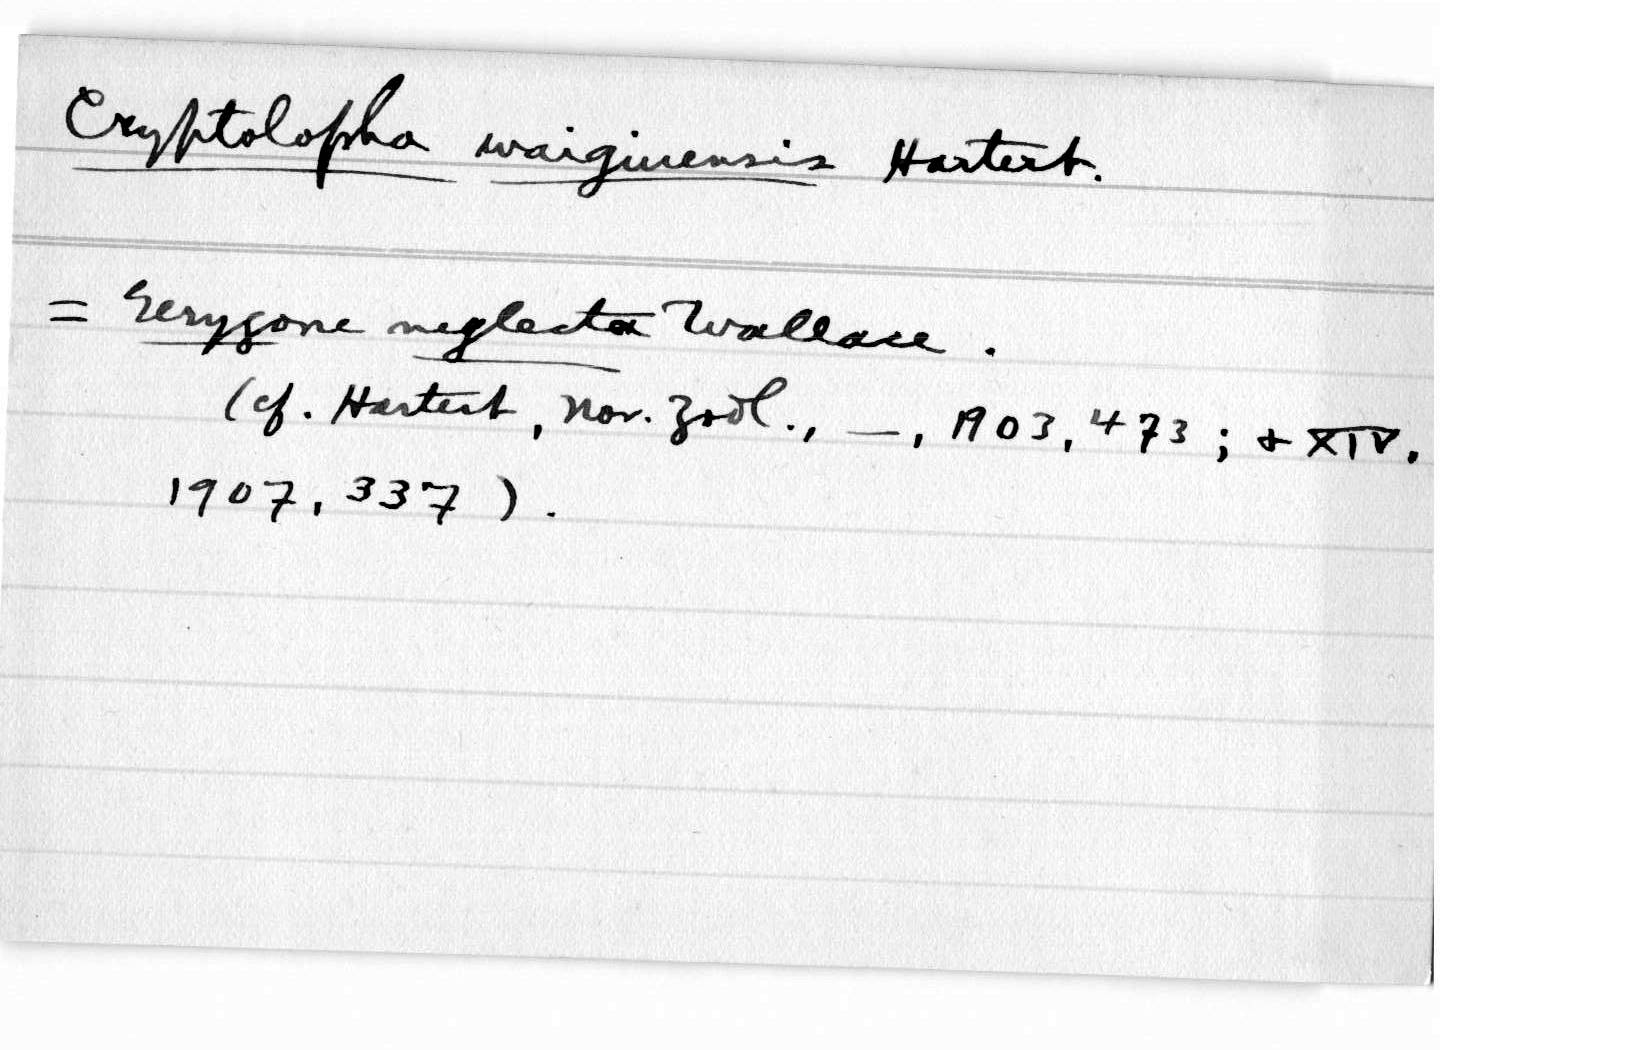 Cryptolopha waigiuensis Hartert.
= Gerygone neglecta Wallace.
(cf. Hartert, Nov. Zoöl., —, 1903, 473; & XIV,
1907, 337).